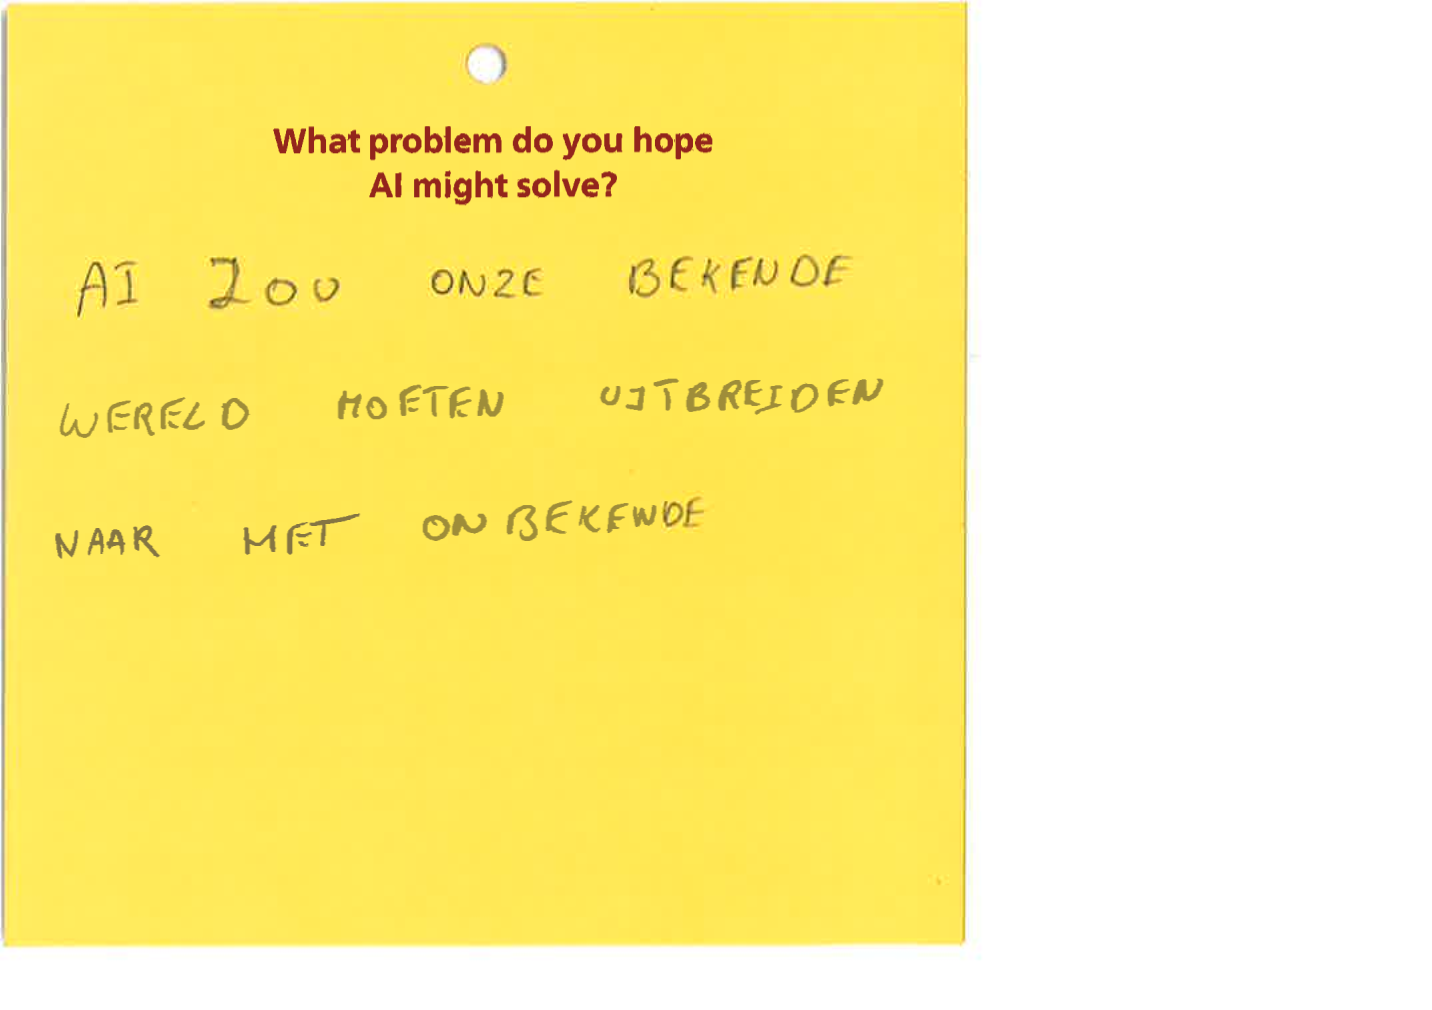 What problem do you hope
AI might solve?
AI ZOU ONZE BEKENDE
WERELD MOETEN UITBREIDEN
NAAR HET ONBEKENDE